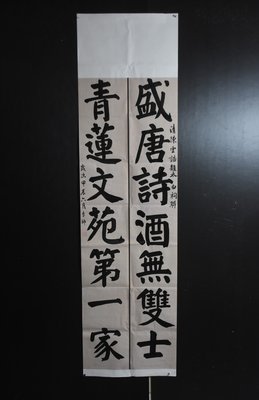 盛唐詩酒無雙士
青蓮文苑第一家